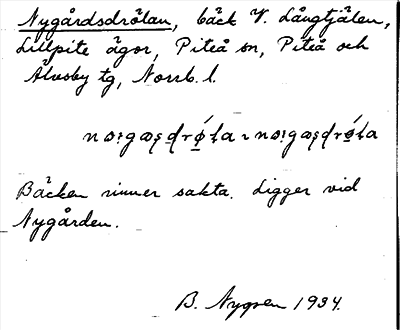 Nygårdsdrötan, bäck V. Långtjälen,
Lillpite ägor, Piteå sn, Piteå och
Älvsby tg, Norrb. l.
Bäcken rinner sakta. Ligger vid
Nygården.
B. Nygren 1934.